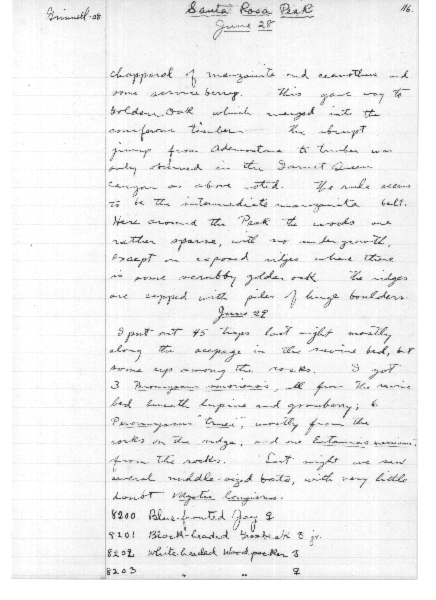 Grinnell-08
Santa Rosa Peak
116.
June 28
chapparal of manzanita and ceanothus and
some serviceberry. This gave way to
Golden Oak which merged into the
coniferous timber. The abrupt
jump from Adenostoma to timber was
only observed in the Garnet Queen
canyon as above noted. The rule seems
to be the intermediate manzanita belt.
Here around the Peak the woods are
rather sparse, with no undergrowth,
except on exposed ridges where there
is some scrubby golden oak. The ridges
are capped with piles of huge boulders.
June 29
I put out 45 traps last night mostly
along the seepage in the ravine bed, but
some up among the rocks. I got
3 Peromyscus sonoriensis, all from the ravine
bed beneath lupine and gooseberry; 6
Peromyscus "truei", mostly from the
rocks on the ridge; and one Eutamias merriami
from the rocks. Last night we saw
several middle-sized bats, with very little
doubt Myotis
8200 Blue-fronted Jay ♀
8201 Black-headed Grosbeak ♂ jr.
8202 White-headed Woodpecker ♂
8203 " " ♀